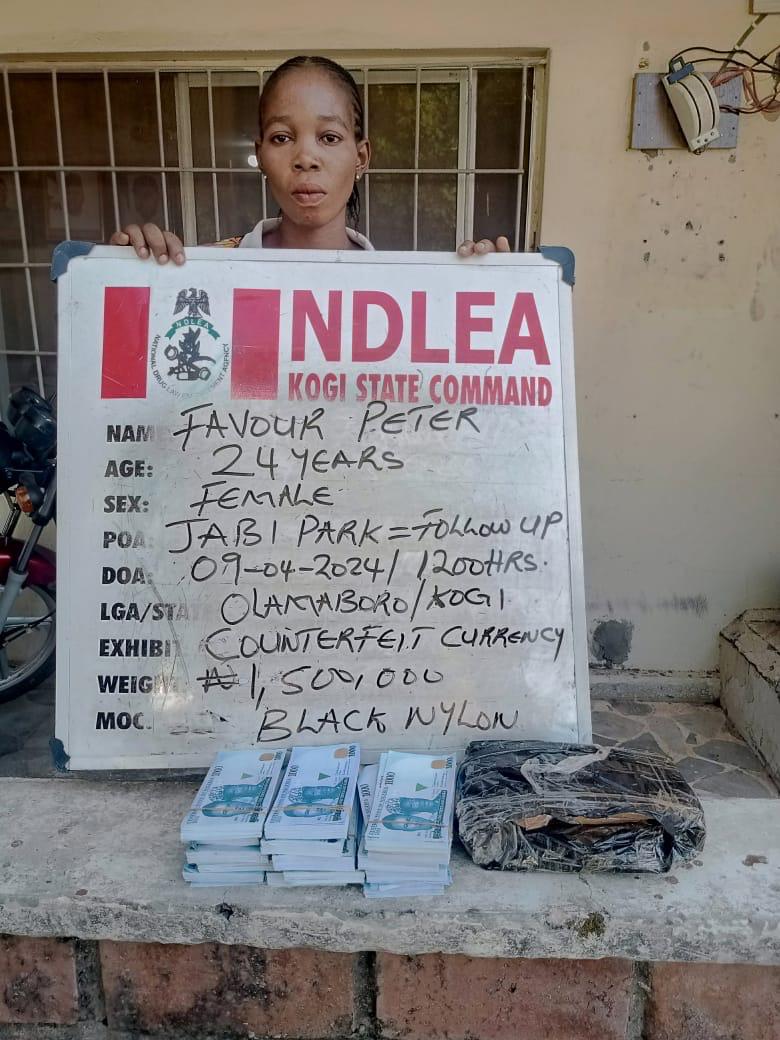 NDLEA
NDLEA
NATIONAL DRUG LAW ENFORCEMENT AGENCY
KOGI STATE COMMAND
NAM FAVOUR PETER
AGE: 24 YEARS
SEX: FEMALE
POA: JABI PARK = FOLLOW UP
DOA: 09-04-2024/1200HRS.
LGA/STAT OLAMABORO/KOGI
EXHIBI COUNTERFEIT CURRENCY
WEIG ₦1,500,000
MOC. BLACK NYLON
1000